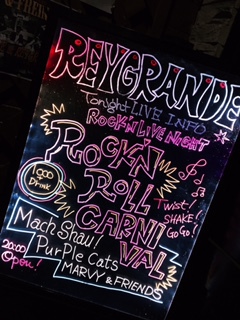 REYGRANDE
Tonight LIVE INFO
Rock'n Live Night
ROCK'N
ROLL
CARNI
VAL
1900
1 Drink
Twist!
SHAKE!
GoGo!
Mach Shau!
PurPle Cats
MARVY & FRIENDS
20:00
Open!